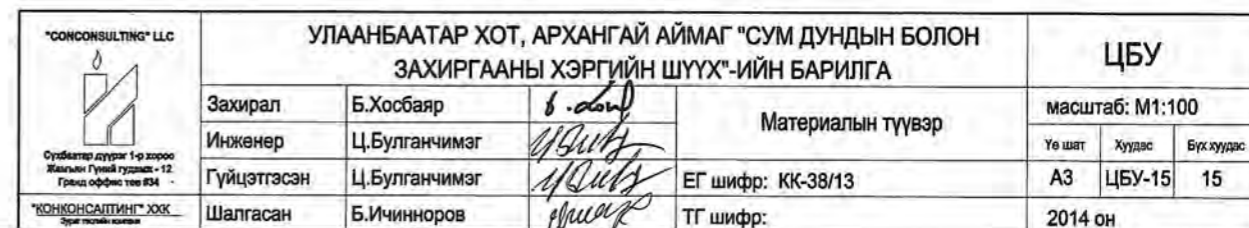 "CONCONSULTING" LLC
Сүхбаатар дүүрэг 1-р хороо
Жамъян Гүний гудамж - 12
Гранд оффис төв #34
"КОНКОНСАЛТИНГ" ХХК
УЛААНБААТАР ХОТ, АРХАНГАЙ АЙМАГ "СУМ ДУНДЫН БОЛОН
ЗАХИРГААНЫ ХЭРГИЙН ШҮҮХ"-ИЙН БАРИЛГА
Захирал Б.Хосбаяр
Инженер Ц.Булганчимэг
Гүйцэтгэсэн Ц.Булганчимэг
Шалгасан Б.Ичинноров
Материалын түүвэр
ЕГ шифр: КК-38/13
ТГ шифр:
ЦБУ
масштаб: М1:100
Үе шат Хуудас Бүх хуудас
А3 ЦБУ-15 15
2014 он